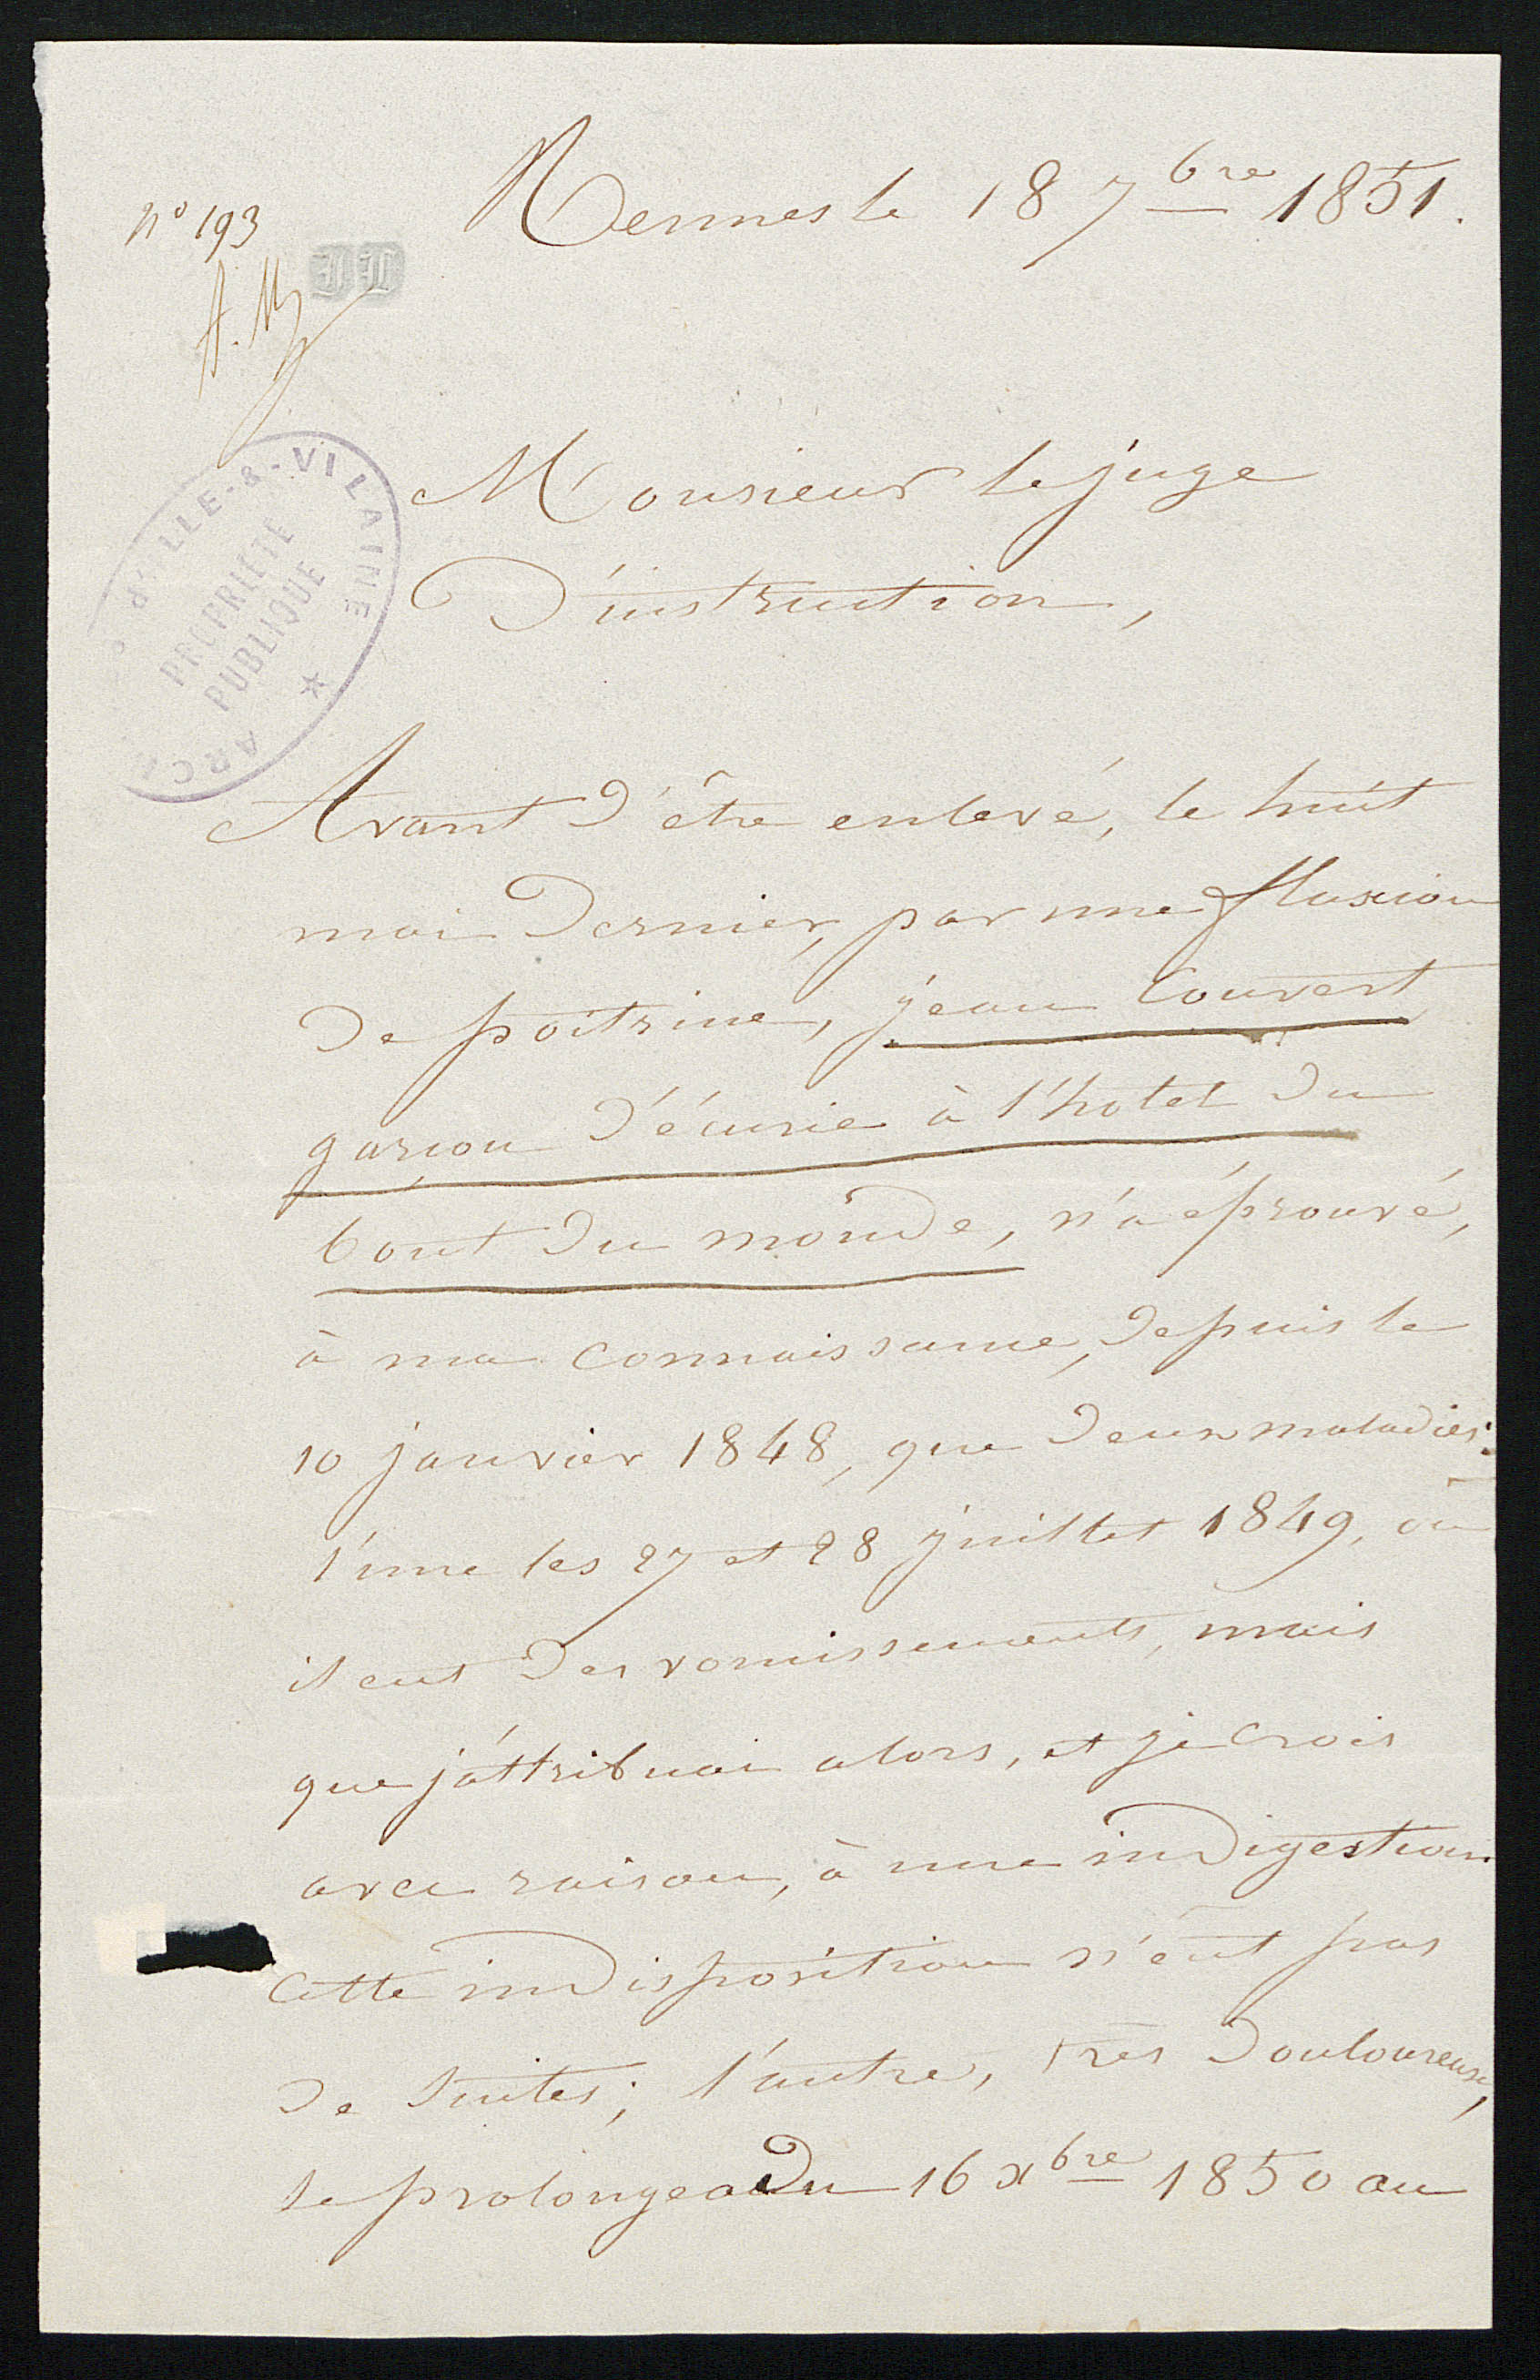 Rennes le 18 7bre 1851.
n° 193
JL
Monsieur le juge
D'instruction,
D'ILLE-&-VILAINE
PROPRIÉTÉ
PUBLIQUE
ARC
Avant d'être enlevé, le huit
mai dernier, par une fluxion
de poitrine, jean Couvert
garçon d'écurie à l'hotel du
bout du monde, n'a éprouvé,
à ma connaissance, depuis le
10 janvier 1848, que deux maladies:
l'une les 27 et 28 juillet 1849, où
il eut des vomissements, mais
que j'attribuai alors, et je crois
avec raison, à une indigestion
cette indisposition n'eut pas
de suites; l'autre, très douloureuse,
se prolongea du 16 xbre 1850 au